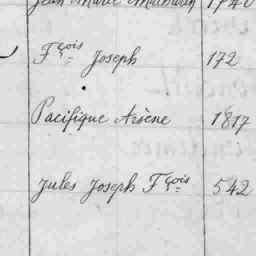 Jean Marie Mathurin 1740
Fçois Joseph 172
Pacifique Arsène 1817
Jules Joseph Fçois 542